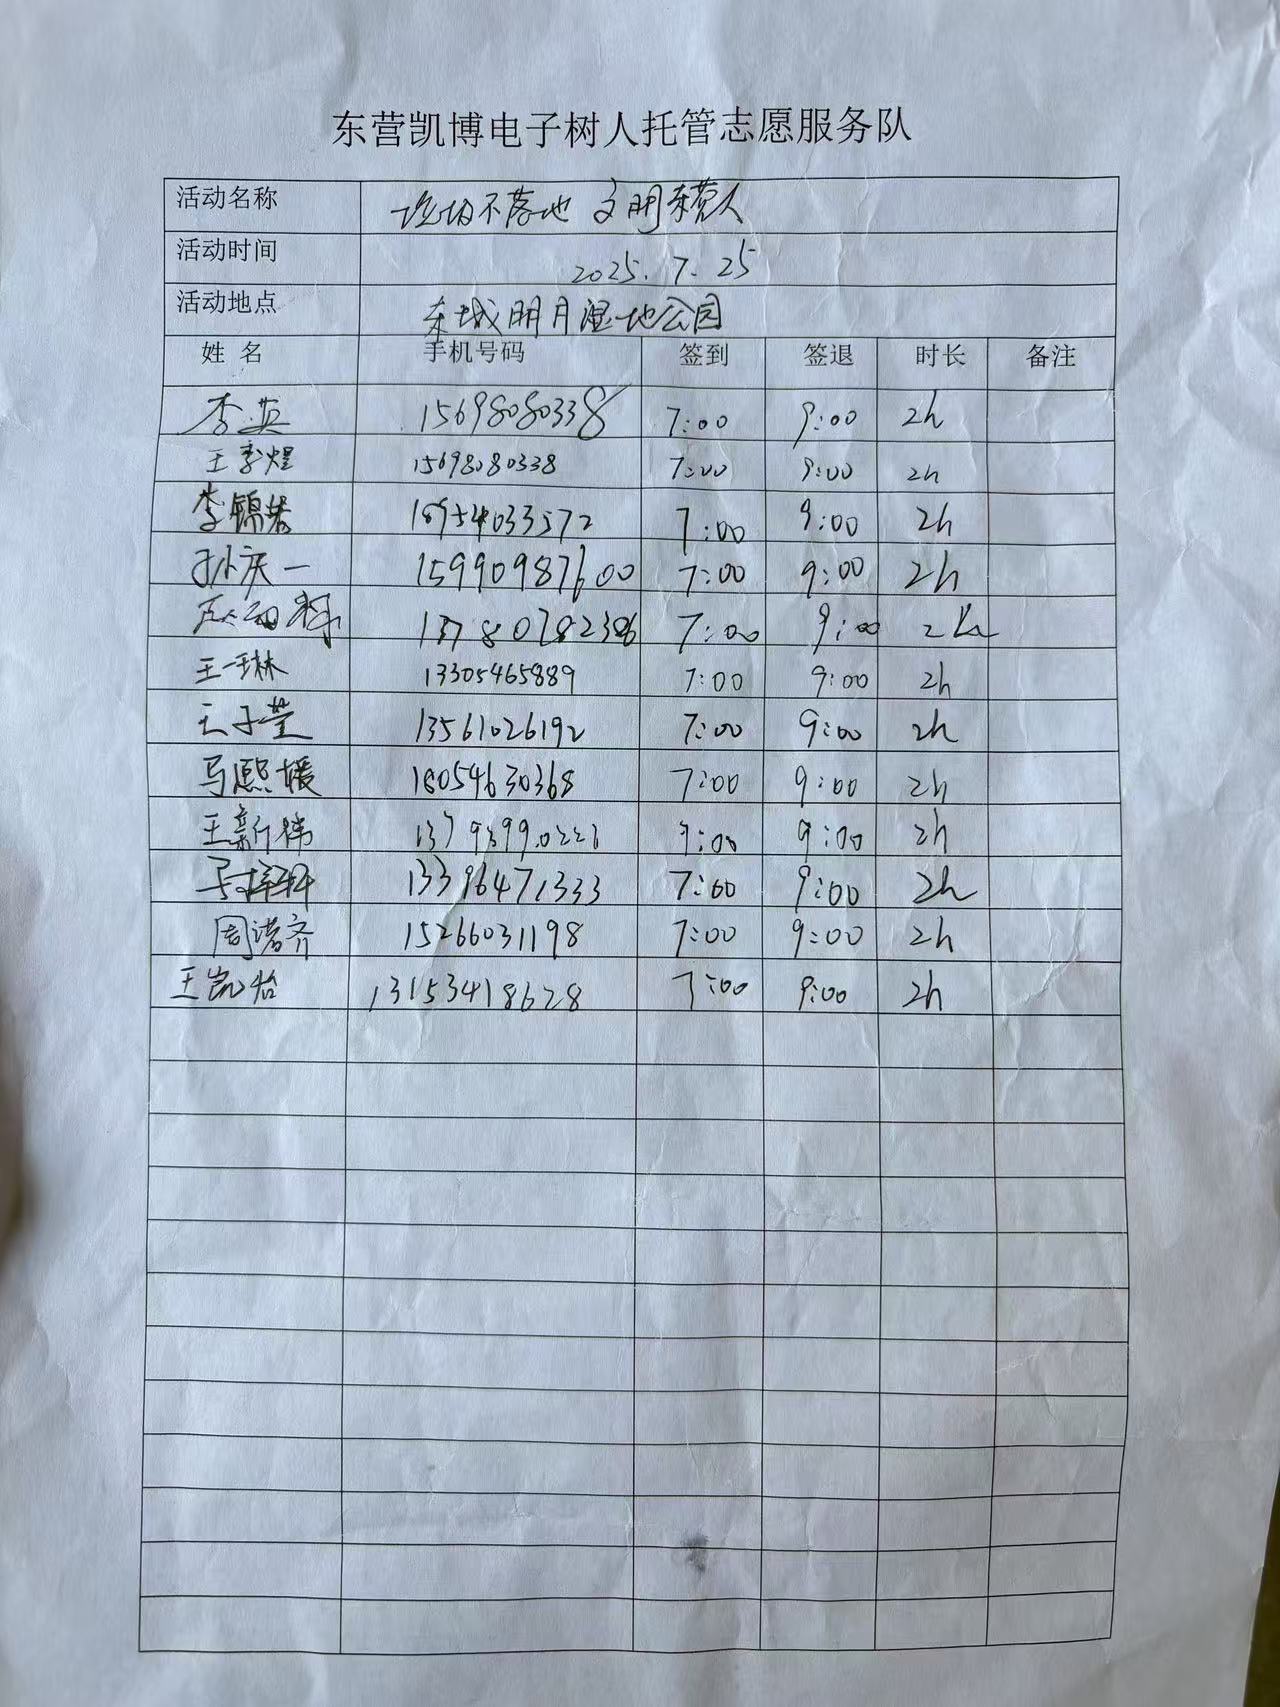 东营凯博电子树人托管志愿服务队
活动名称 垃圾不落地 文明东营人
活动时间 2025.7.25
活动地点 东城明月湿地公园
姓 名 手机号码 签到 签退 时长 备注
李英 15698080338 7:00 9:00 2h
王李煜 15698080338 7:00 9:00 2h
李锦 16954033572 7:00 9:00 2h
孙庆一 15990987600 7:00 9:00 2h
13780782386 7:00 9:00 2h
王一琳 13305465889 7:00 9:00 2h
王子莹 13561026192 7:00 9:00 2h
马熙媛 18054630368 7:00 9:00 2h
王新伟 9:00 9:00 2h
马梓轩 13396471333 7:00 9:00 2h
周诺齐 15266031198 7:00 9:00 2h
王凯怡 13153418628 7:00 9:00 2h